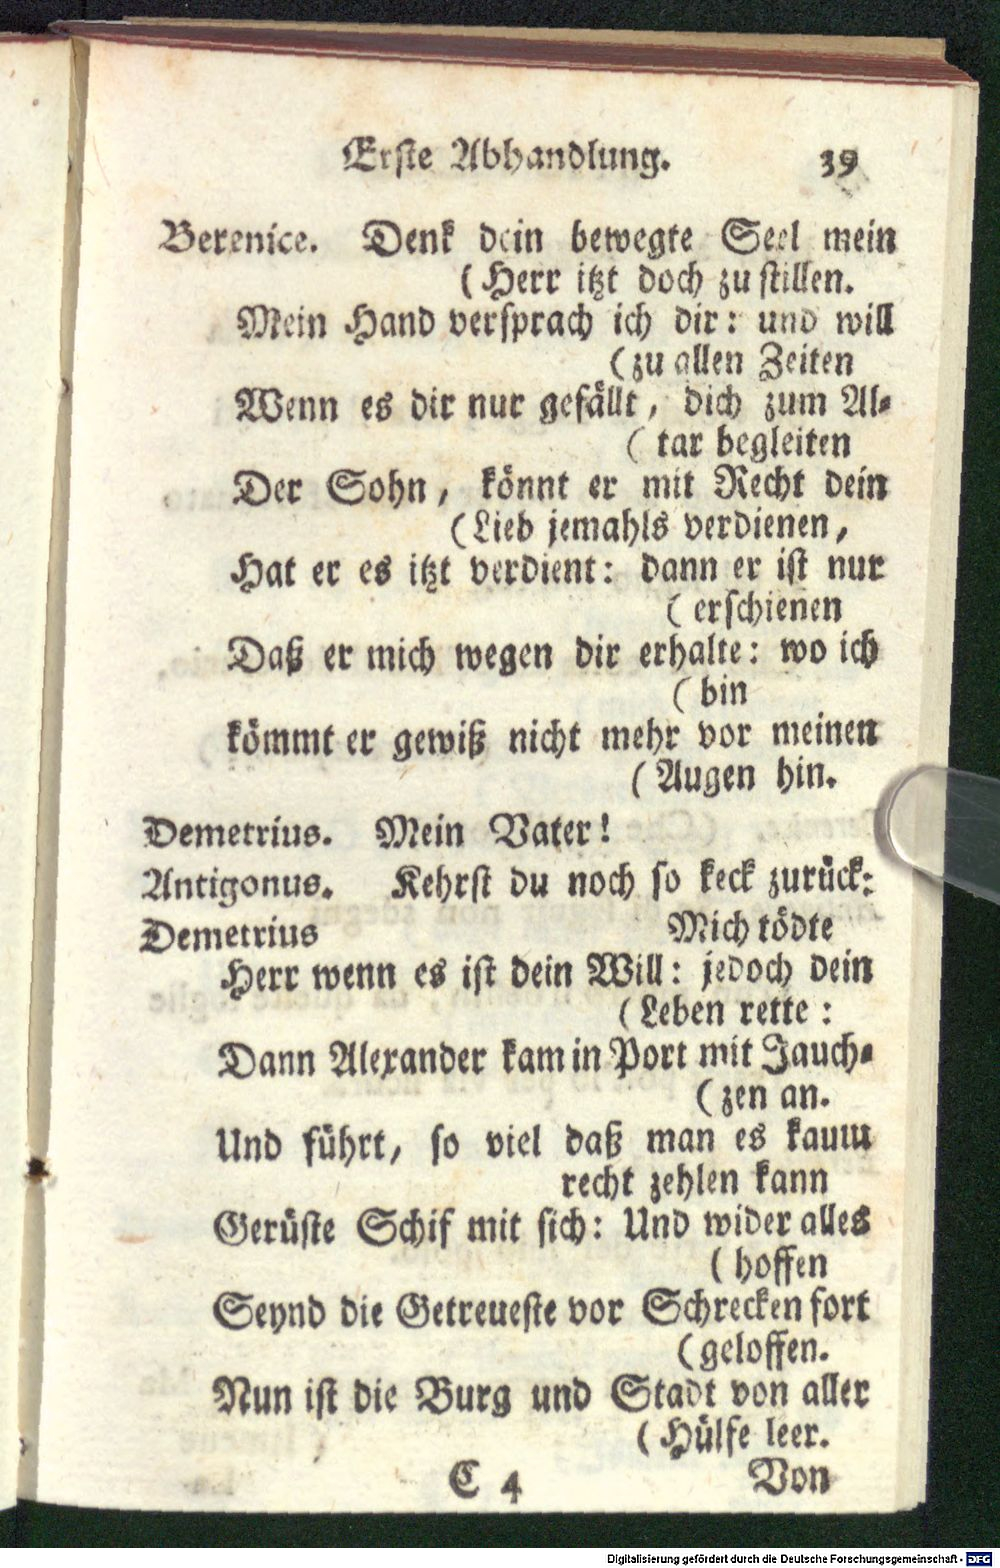 Erste Abhandlung. 39
Berenice. Denk dein bewegte Seel mein
(Herr itzt doch zu stillen.
Mein Hand versprach ich dir: und will
(zu allen Zeiten
Wenn es dir nur gefällt, dich zum Al-
(tar begleiten
Der Sohn, könnt er mit Recht dein
(Lieb jemahls verdienen,
Hat er es itzt verdient: dann er ist nur
(erschienen
Daß er mich wegen dir erhalte: wo ich
(bin
kömmt er gewiß nicht mehr vor meinen
(Augen hin.
Demetrius. Mein Vater!
Antigonus. Kehrst du noch so keck zurück:
Demetrius Mich tödte
Herr wenn es ist dein Will: jedoch dein
(Leben rette:
Dann Alexander kam in Port mit Jauch-
(zen an.
Und führt, so viel daß man es kaum
recht zehlen kann
Gerüste Schif mit sich: Und wider alles
(hoffen
Seynd die Getreueste vor Schrecken fort
(geloffen.
Nun ist die Burg und Stadt von aller
(Hülfe leer.
C 4 Von
Digitalisierung gefördert durch die Deutsche Forschungsgemeinschaft - DFG